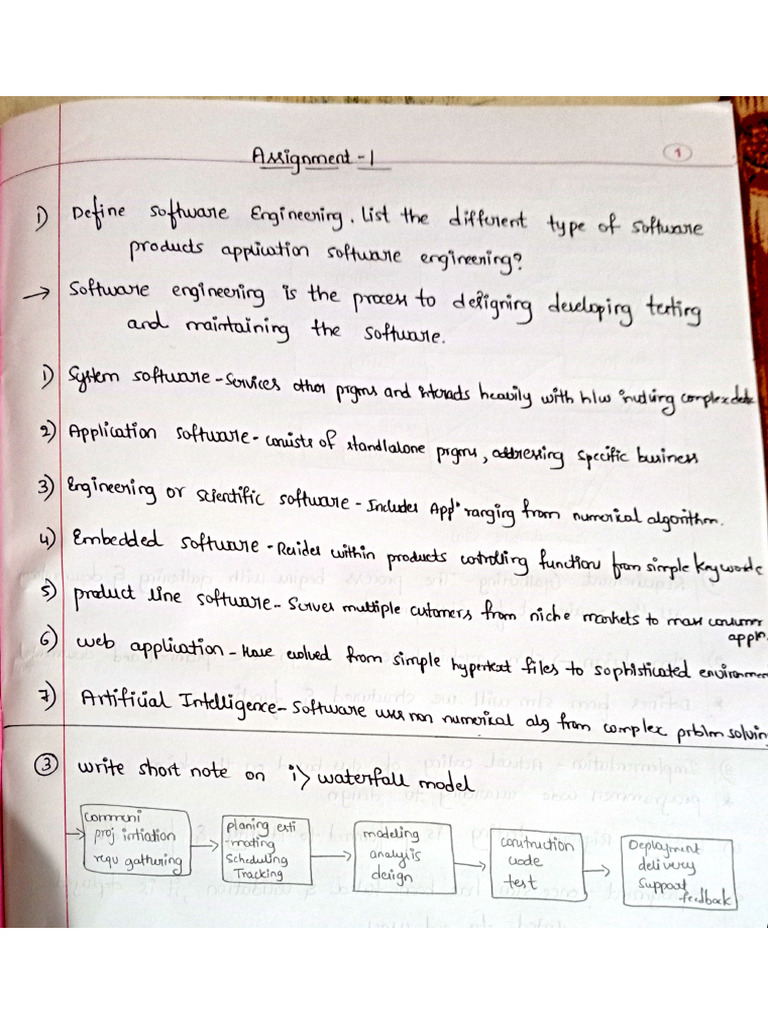 Assignment - 1
1
1) Define software Engineering. List the different type of software
products application software engineering?
→ Software engineering is the process to designing developing testing
and maintaining the software.
1) System software - Services other prgms and interads heavily with h/w incluing complex
2) Application software - consists of standlalone prgms, addressing specific business
3) Engineering or scientific software - Includes Appⁿ ranging from numerical algorithm.
4) Embedded software - Resides within products controlling function from simple keywords
5) product line software - Serves multiple cutomers from niche markets to mass consumer
appⁿ.
6) web application - Have evolved from simple hypertext files to sophisticated environmen
7) Artificial Intelligence - Software uses non numerical alg from complex prblm solving
③ write short note on i) waterfall model
communi
proj intiation
requ gathering
planing esti
-mating
Scheduling
Tracking
modeling
analysis
design
construction
code
test
Deployment
delivery
support
feedback